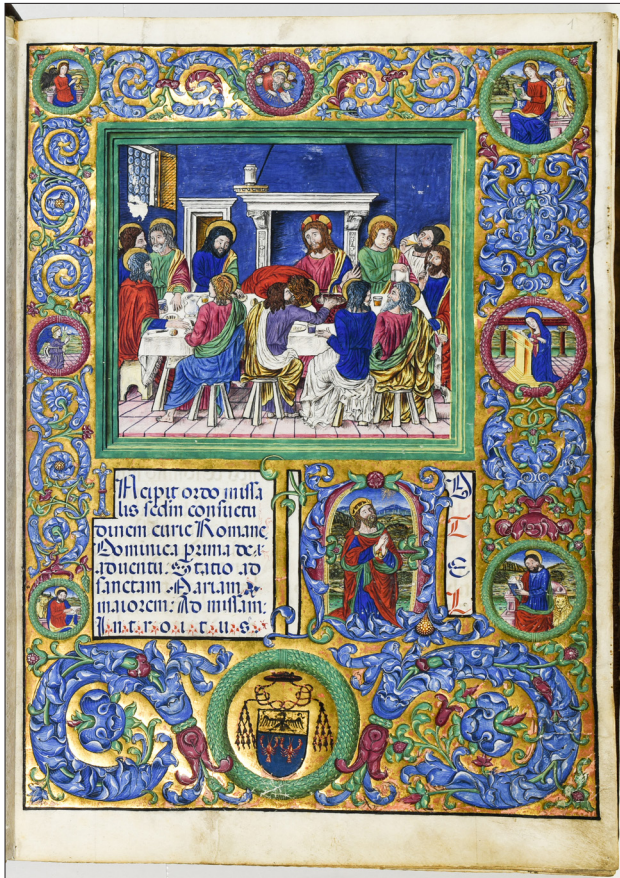 INcipit ordo missa
lis secdm consuetu
dinem curie Romane.
Dominica prima de
aduentu. Statio ad
sanctam Mariam
maiorem. Ad missam.
I.n.t.r.o.i.t.u.s.
A D
T
E
L
1